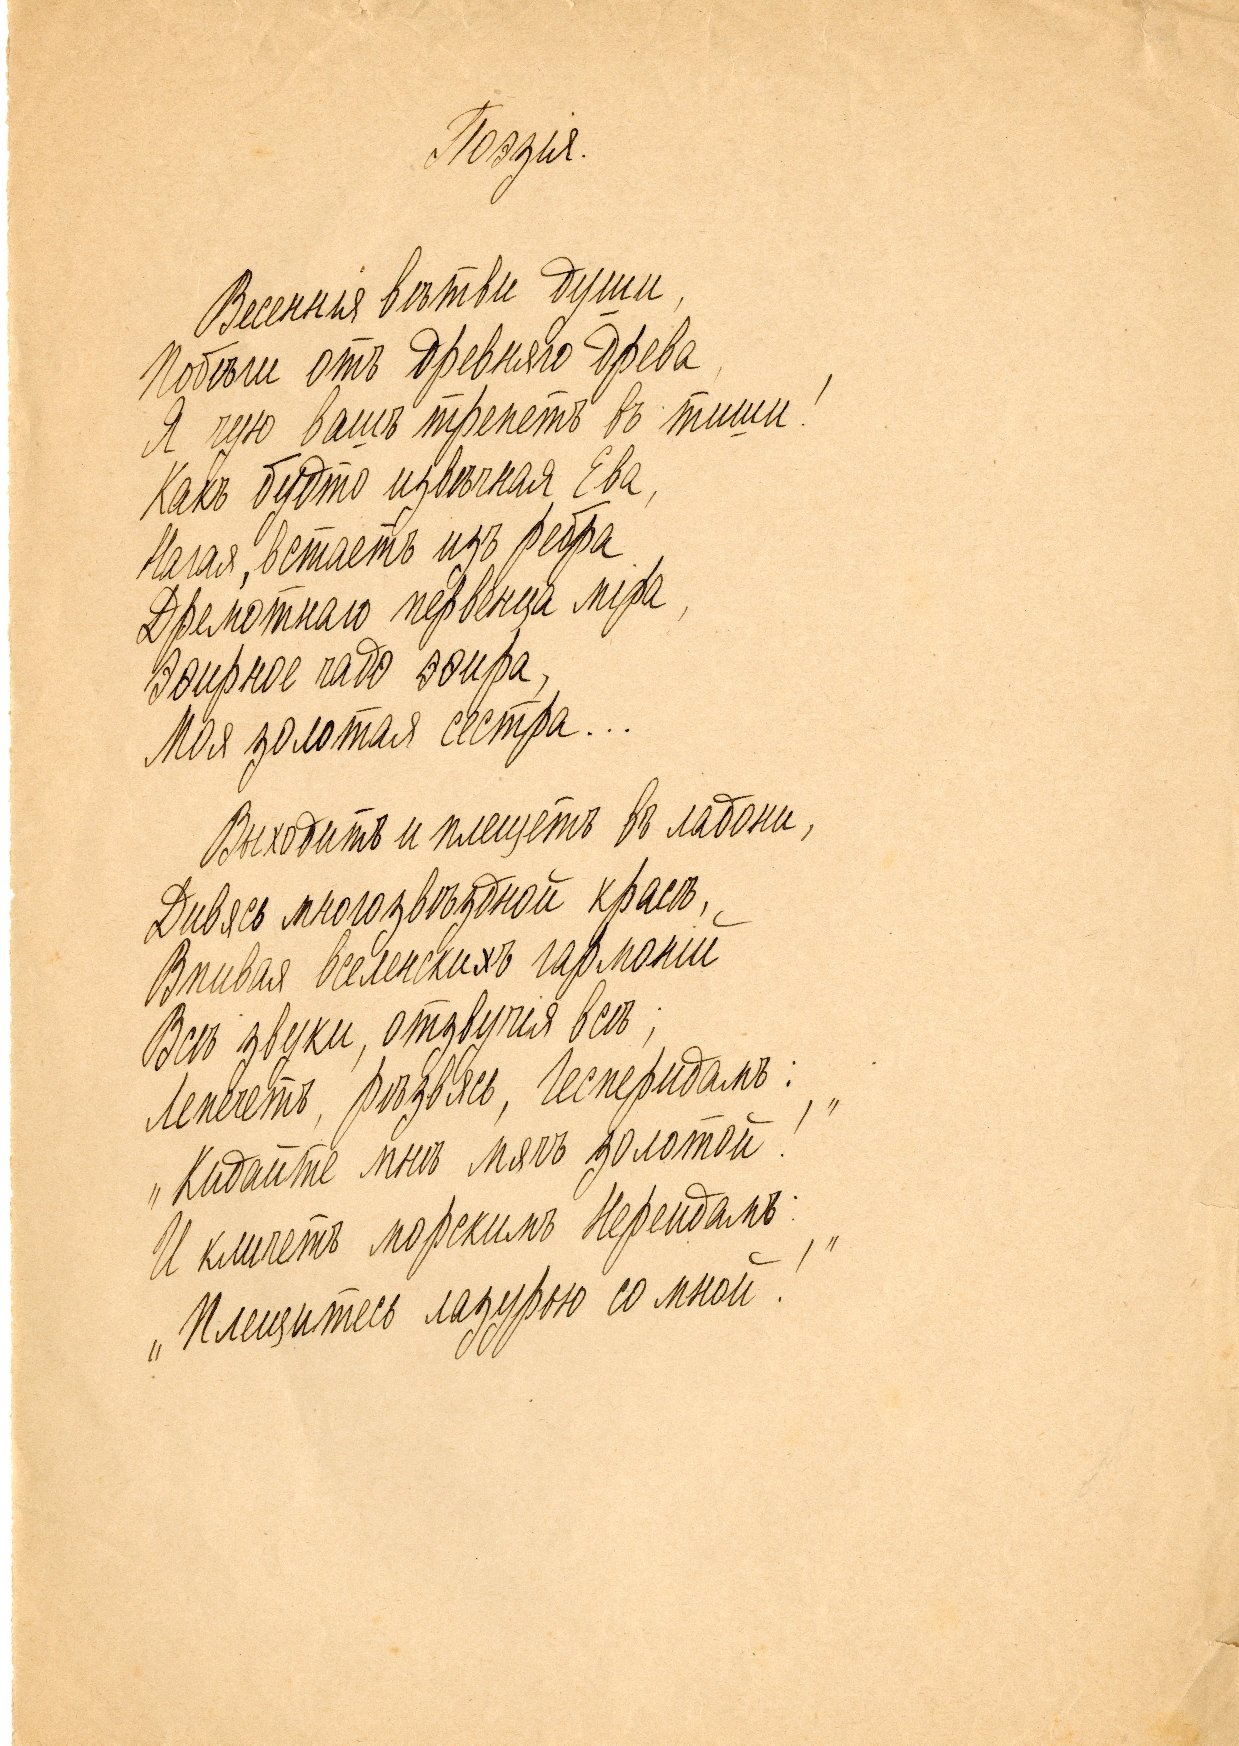 Поэзія.
Весеннія вѣтви души,
Побѣги отъ древняго древа,
Я чую вашъ трепетъ въ тиши!
Какъ будто извѣчная Ева,
Нагая, встаетъ изъ ребра
Дремотнаго первенца міра,
Эѳирное чадо эѳира,
Моя золотая сестра...
Выходитъ и плещетъ въ ладони,
Дивясь многозвѣздной красѣ,
Впивая вселенскихъ гармоній
Всѣ звуки, отзвучія всѣ;
Лепечетъ, рѣзвясь, Гесперидамъ:
„Кидайте мнѣ мячъ золотой!"
И кличетъ морскимъ Нереидамъ:
„Плещитесь лазурью со мной!"